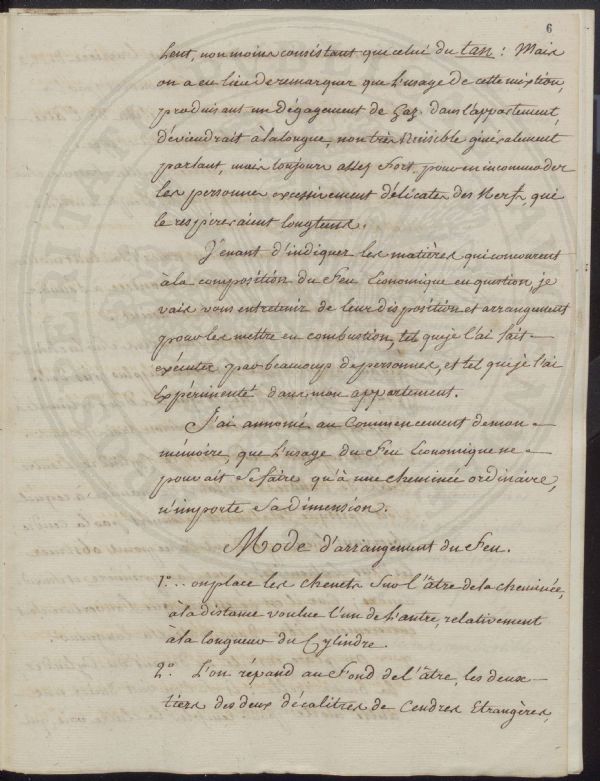 6
hent, non moins consistant que celui du tan : Mais
on a eu lieu de remarquer que l'usage de cette mixtion,
produisant un dégagement de Gaz dans l'appartement,
déviendrait à la longue, non très Nuisible généralement
parlant, mais toujours assez Fort, pour en incommoder
les personnes excessivement délicates des Nerfs, qui
le respireraient longtems.
J'enant d'indiquer les matières qui concourent
à la composition du Feu Economique en question, je
vais vous entretenir de leur disposition et arrangement
pour les mettre en combustion, tel que je l'ai fait
exécuter par beaucoup de personnes, et tel que je l'ai
Expérimenté dans mon appartement.
J'ai annoncé au Commencement de mon
mémoire, que l'usage du Feu Economique ne
pouvait se faire qu'à une cheminée ordinaire,
n'importe Sa Dimension.
Mode d'arrangement du Feu.
1.° .. on place les chenets sur l'âtre de la cheminée,
à la distance voulue l'un de l'autre, relativement
à la longueur du Cylindre.
2.° L'on répand au Fond de l'âtre, les deux
tiers des deux décalitres de Cendres Etrangères,